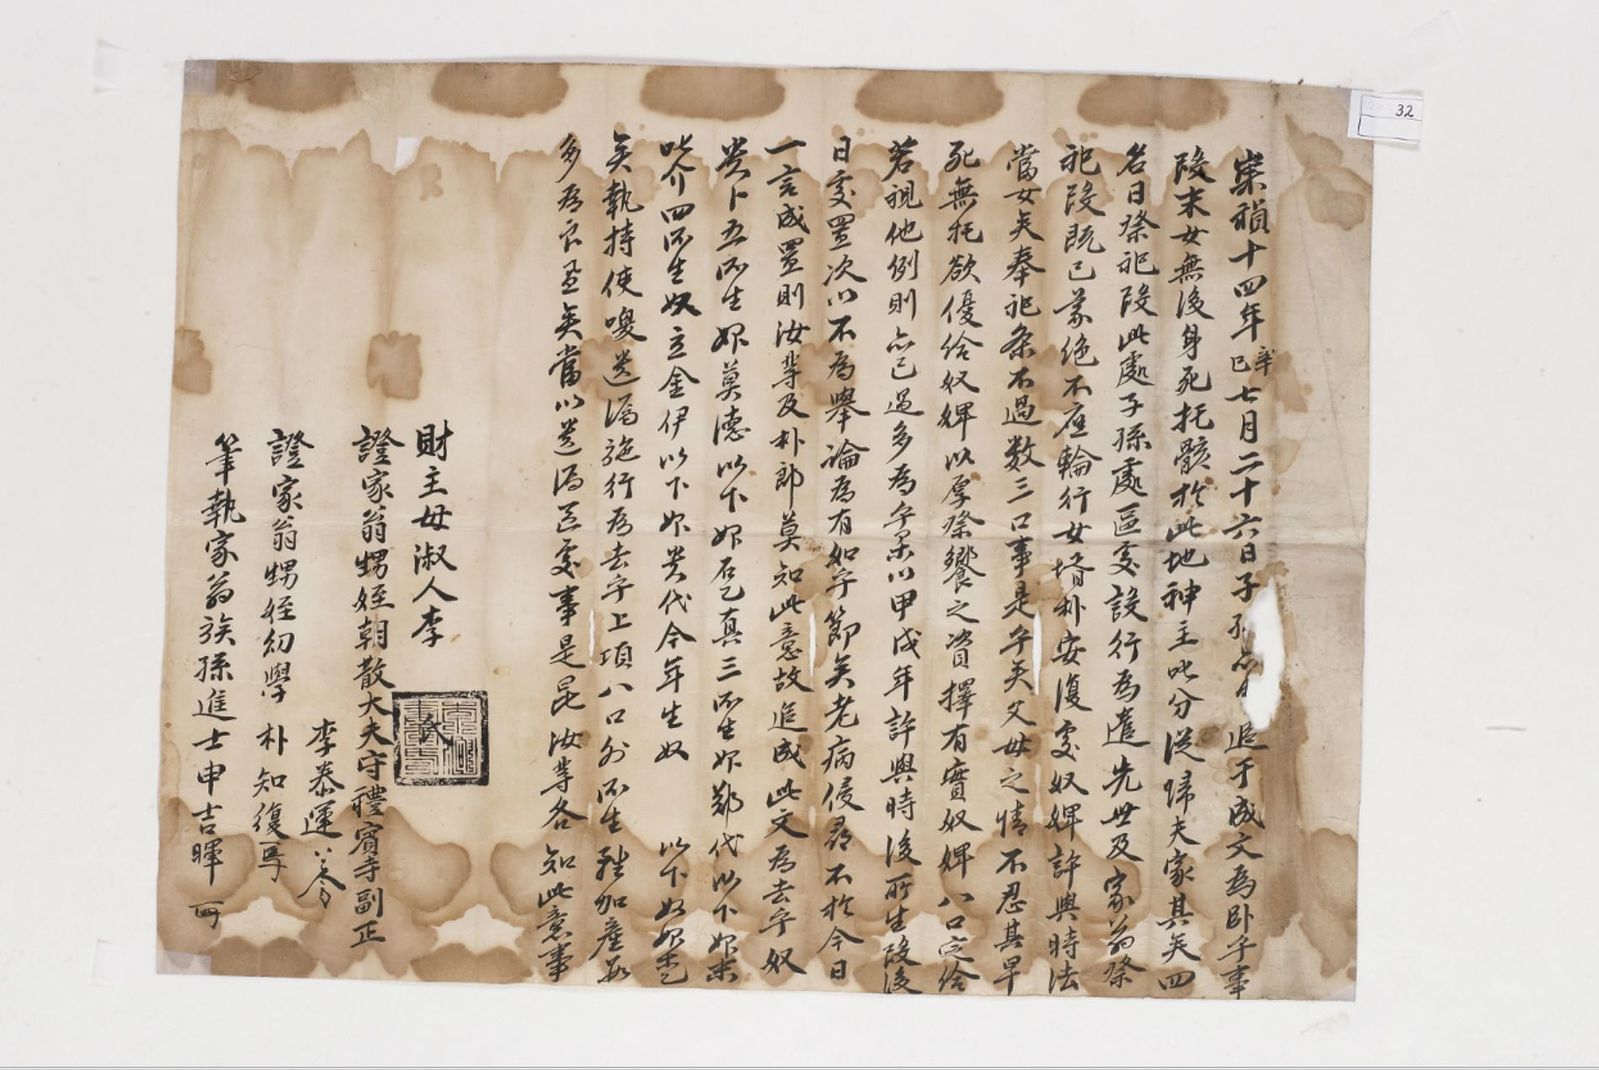 32
崇禎十四年辛巳七月二十六日子孫亦中追于成文爲臥乎事
段末女無後身死托骸於此地神主叱分從歸夫家其矣四
名日祭祀段此處子孫處區處設行爲遣先世及家翁祭
祀段旣已蒙絶不應輪行女壻朴安復處奴婢許與時法
當女矣奉祀条不過数三口事是乎矣父母之情不忍其早
死無托欲優給奴婢以厚祭饗之資擇有實奴婢八口定給
若視他例則亦已過多爲乎果以甲戌年許與時後所生段後
日處置次以不爲擧論爲有如乎節矣老病侵尋不於今日
一言成置則汝輩及朴郎莫知此意故追成此文爲去乎奴
貴卜五所生婢莫德以下婢石乙眞三所生婢鄭代以下婢
叱介四所生奴立金伊以下婢貴代今年生奴 以下奴婢
矣執持使喚送漏施行爲去乎上項八口外所生雖加産
多爲良置矣當以送漏区處事是昆汝等各知此意事
財主母淑人李
證家翁甥姪朝散大夫守禮賓寺副正
李泰運
證家翁甥姪幼學 朴知復
筆執家翁族孫進士申吉暉